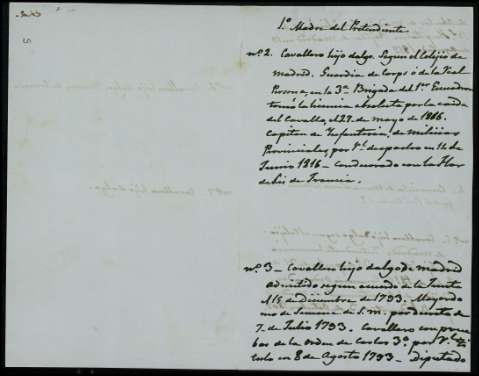 1º Madre del Pretendiente
nº. 2. Cavallero hijodalgo. Segun el Colejio de
Madrid. Guardia de Corps ó de la Real
Persona, en la 3ª Brigada del 1er Escuadron
tomó la licencia absoluta por la caida
del Cavallo, el 29 de mayo de 1816.
Capitan de Infanteria, de milicias
Provinciales, por Rl. despacho en 14 de
Junio 1816 - Condecorado con la Flor
de Lis de Francia.
nº. 3 - Cavallero hijodalgo de Madrid
admitido segun acuerdo de la Junta
15 de Diciembre de 1793. Mayordo
mo de Semana de S. M. por decreto de
7. de Julio 1793. Cavallero con prue
bas de la orden de Carlos 3º por Rl. Ti
tulo en 8 de Agosto 1793 - Diputado